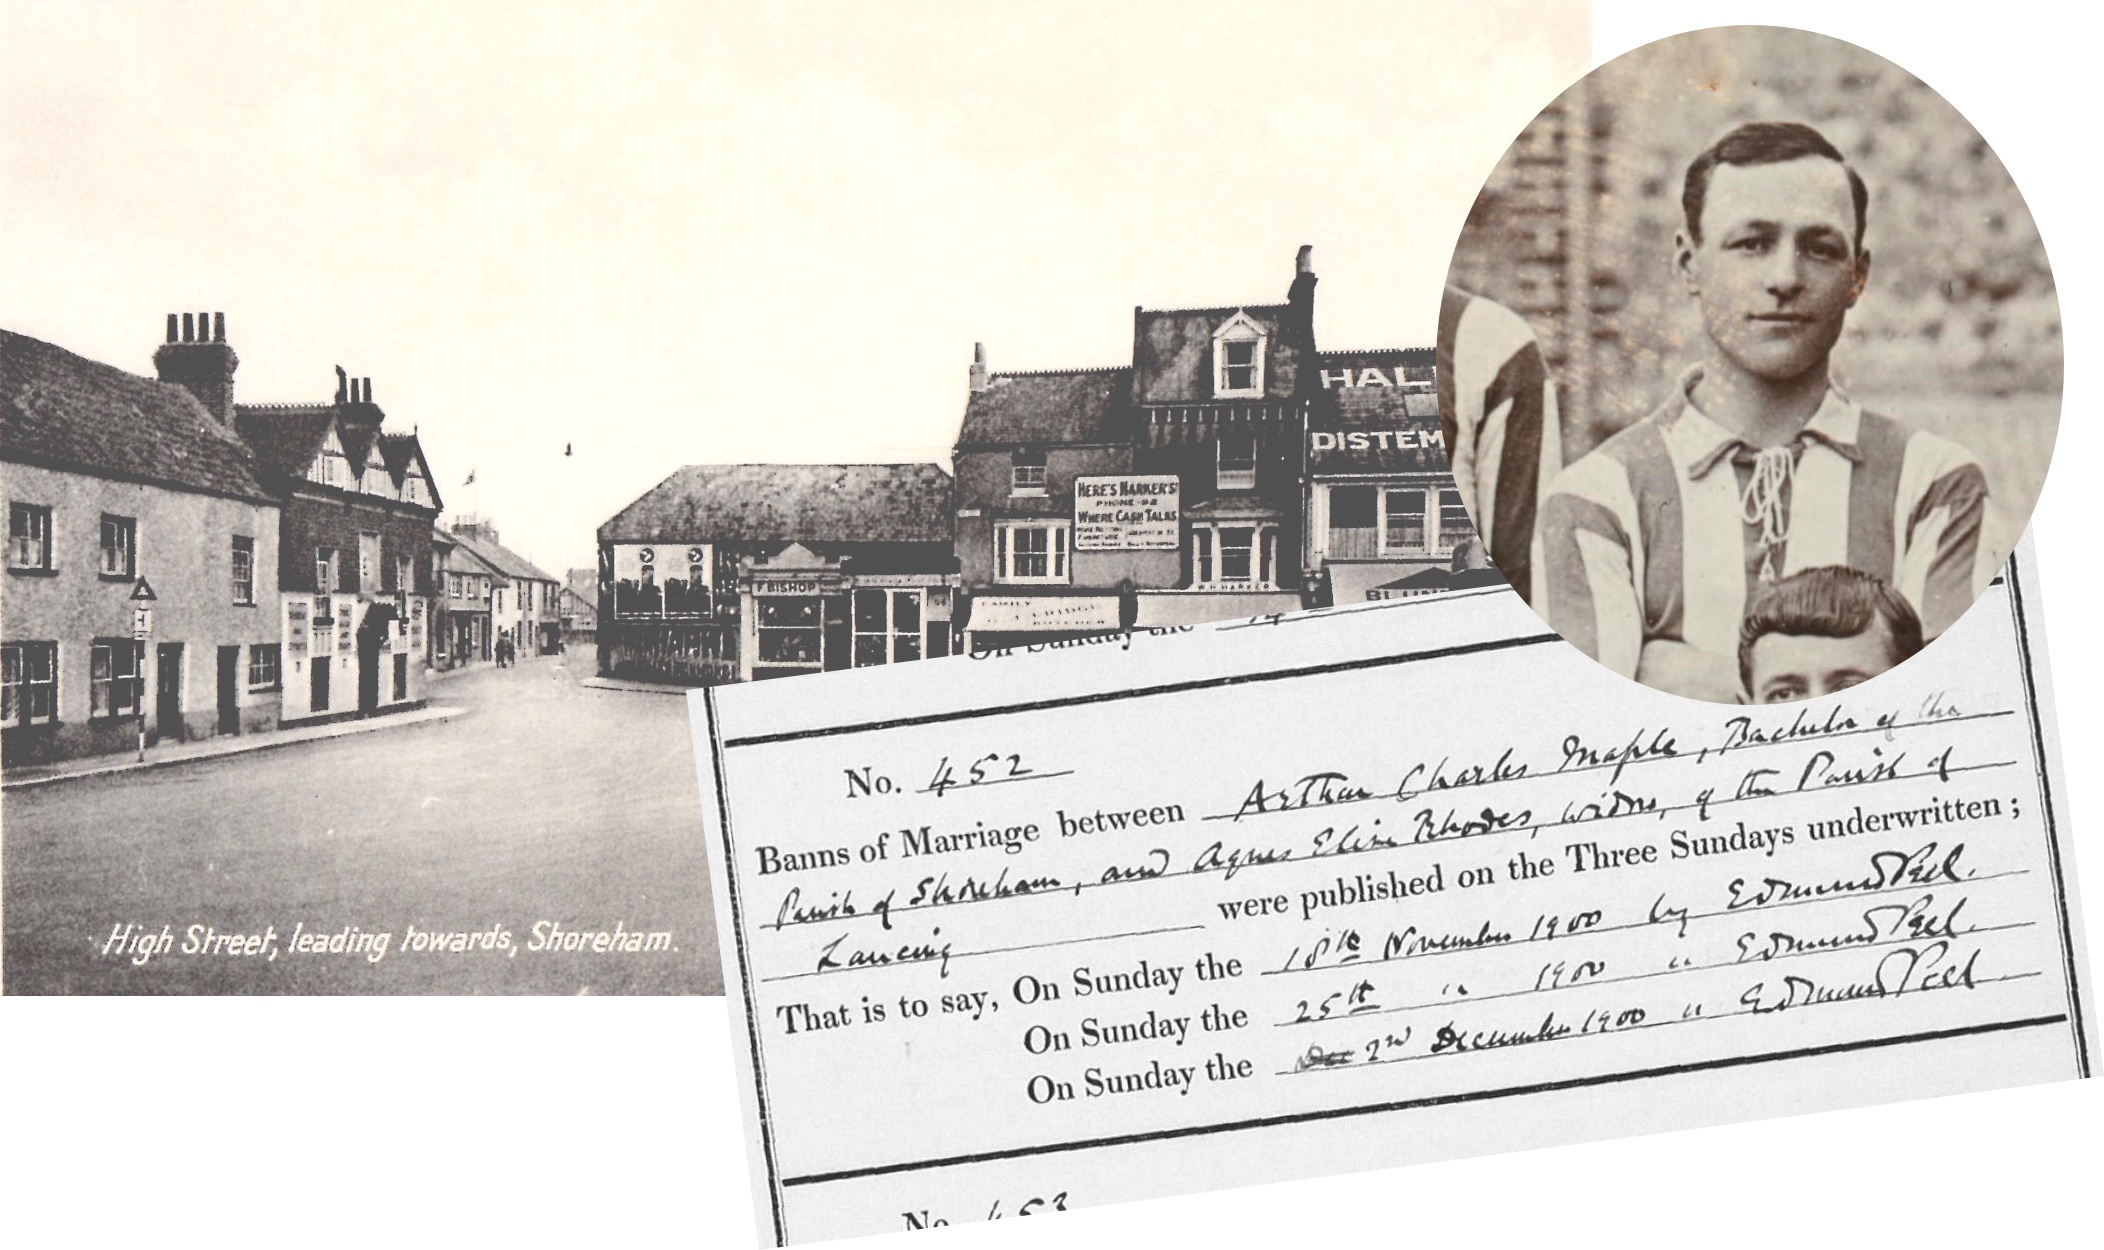 HAL
DISTEM
HERE'S HARKER'S
PHONE
WHERE CASH TALKS
F. BISHOP
W. H. HARKER
FAMILY
BUTCHER
High Street, leading towards, Shoreham.
On Sunday the
No. 452
Banns of Marriage between Arthur Charles Maple, Bachelor of the
Parish of Shoreham, and Agnes Eliza Rhodes, widow, of the Parish of
Lancing were published on the Three Sundays underwritten;
That is to say, On Sunday the 18th November 1900 by Edmund Peel.
On Sunday the 25th " 1900 " Edmund Peel.
On Sunday the 2nd December 1900 " Edmund Peel.
No. 453